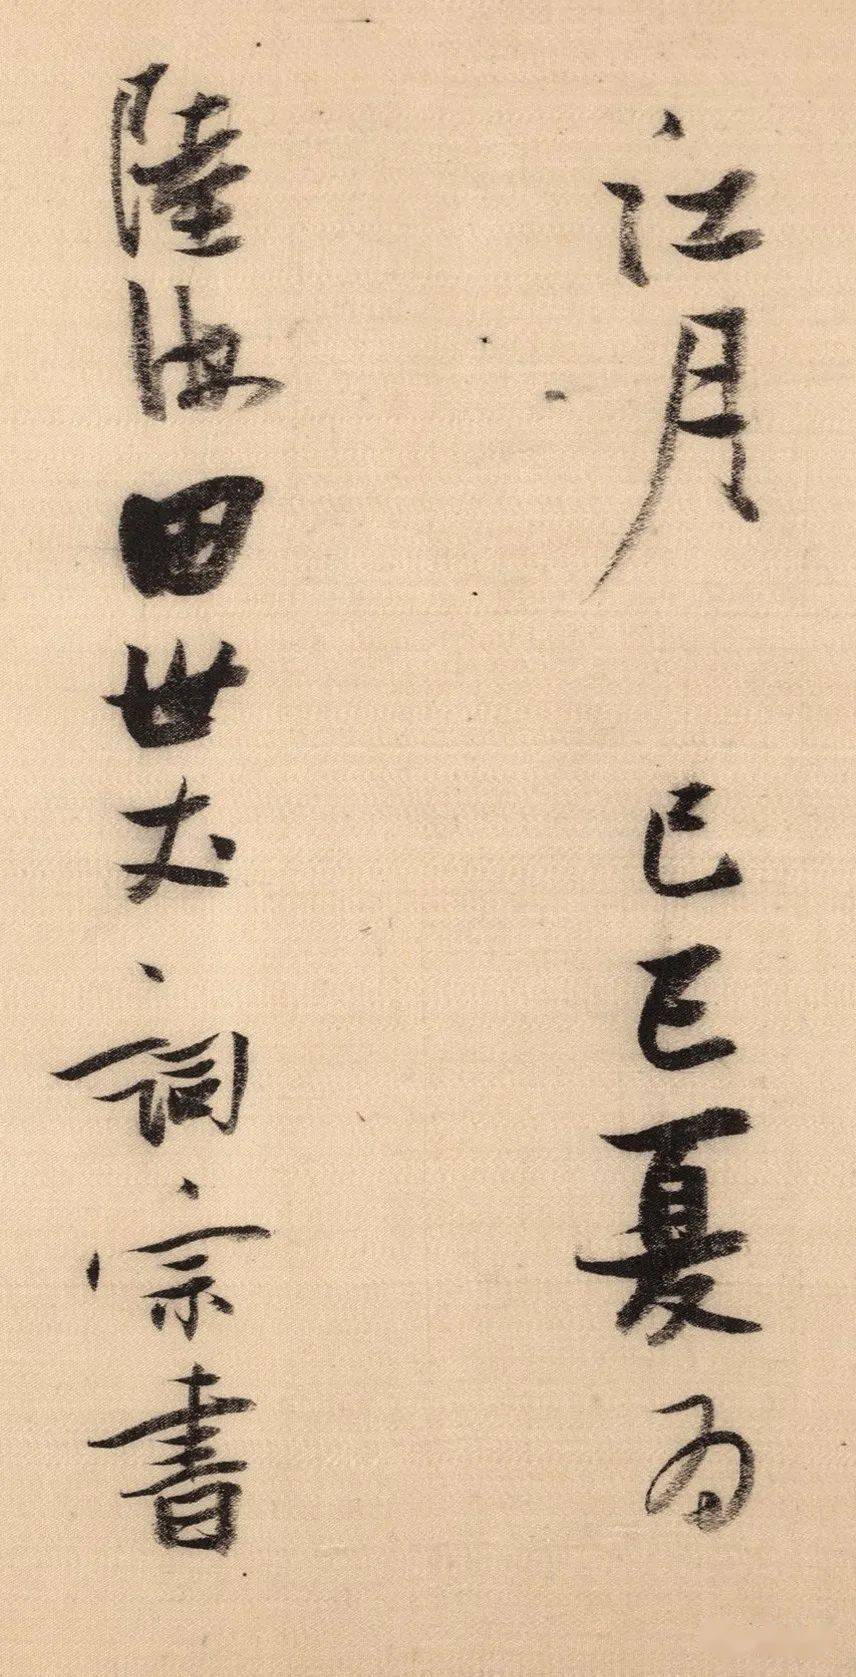 江月 己巳夏为
陸海田世丈詞宗書